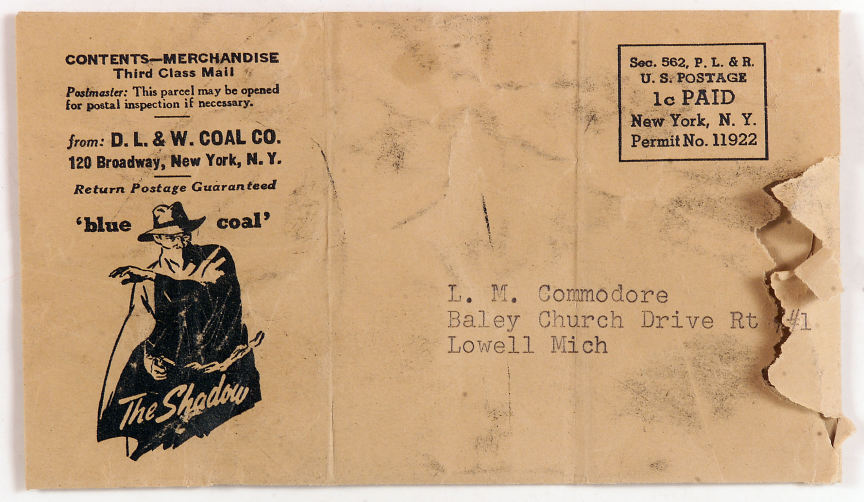 CONTENTS—MERCHANDISE
Third Class Mail
Postmaster: This parcel may be opened
for postal inspection if necessary.
from: D. L. & W. COAL CO.
120 Broadway, New York, N. Y.
Return Postage Guaranteed
'blue coal'
The Shadow
Sec. 562, P. L. & R.
U. S. POSTAGE
1c PAID
New York, N. Y.
Permit No. 11922
L. M. Commodore
Baley Church Drive Rt #1
Lowell Mich